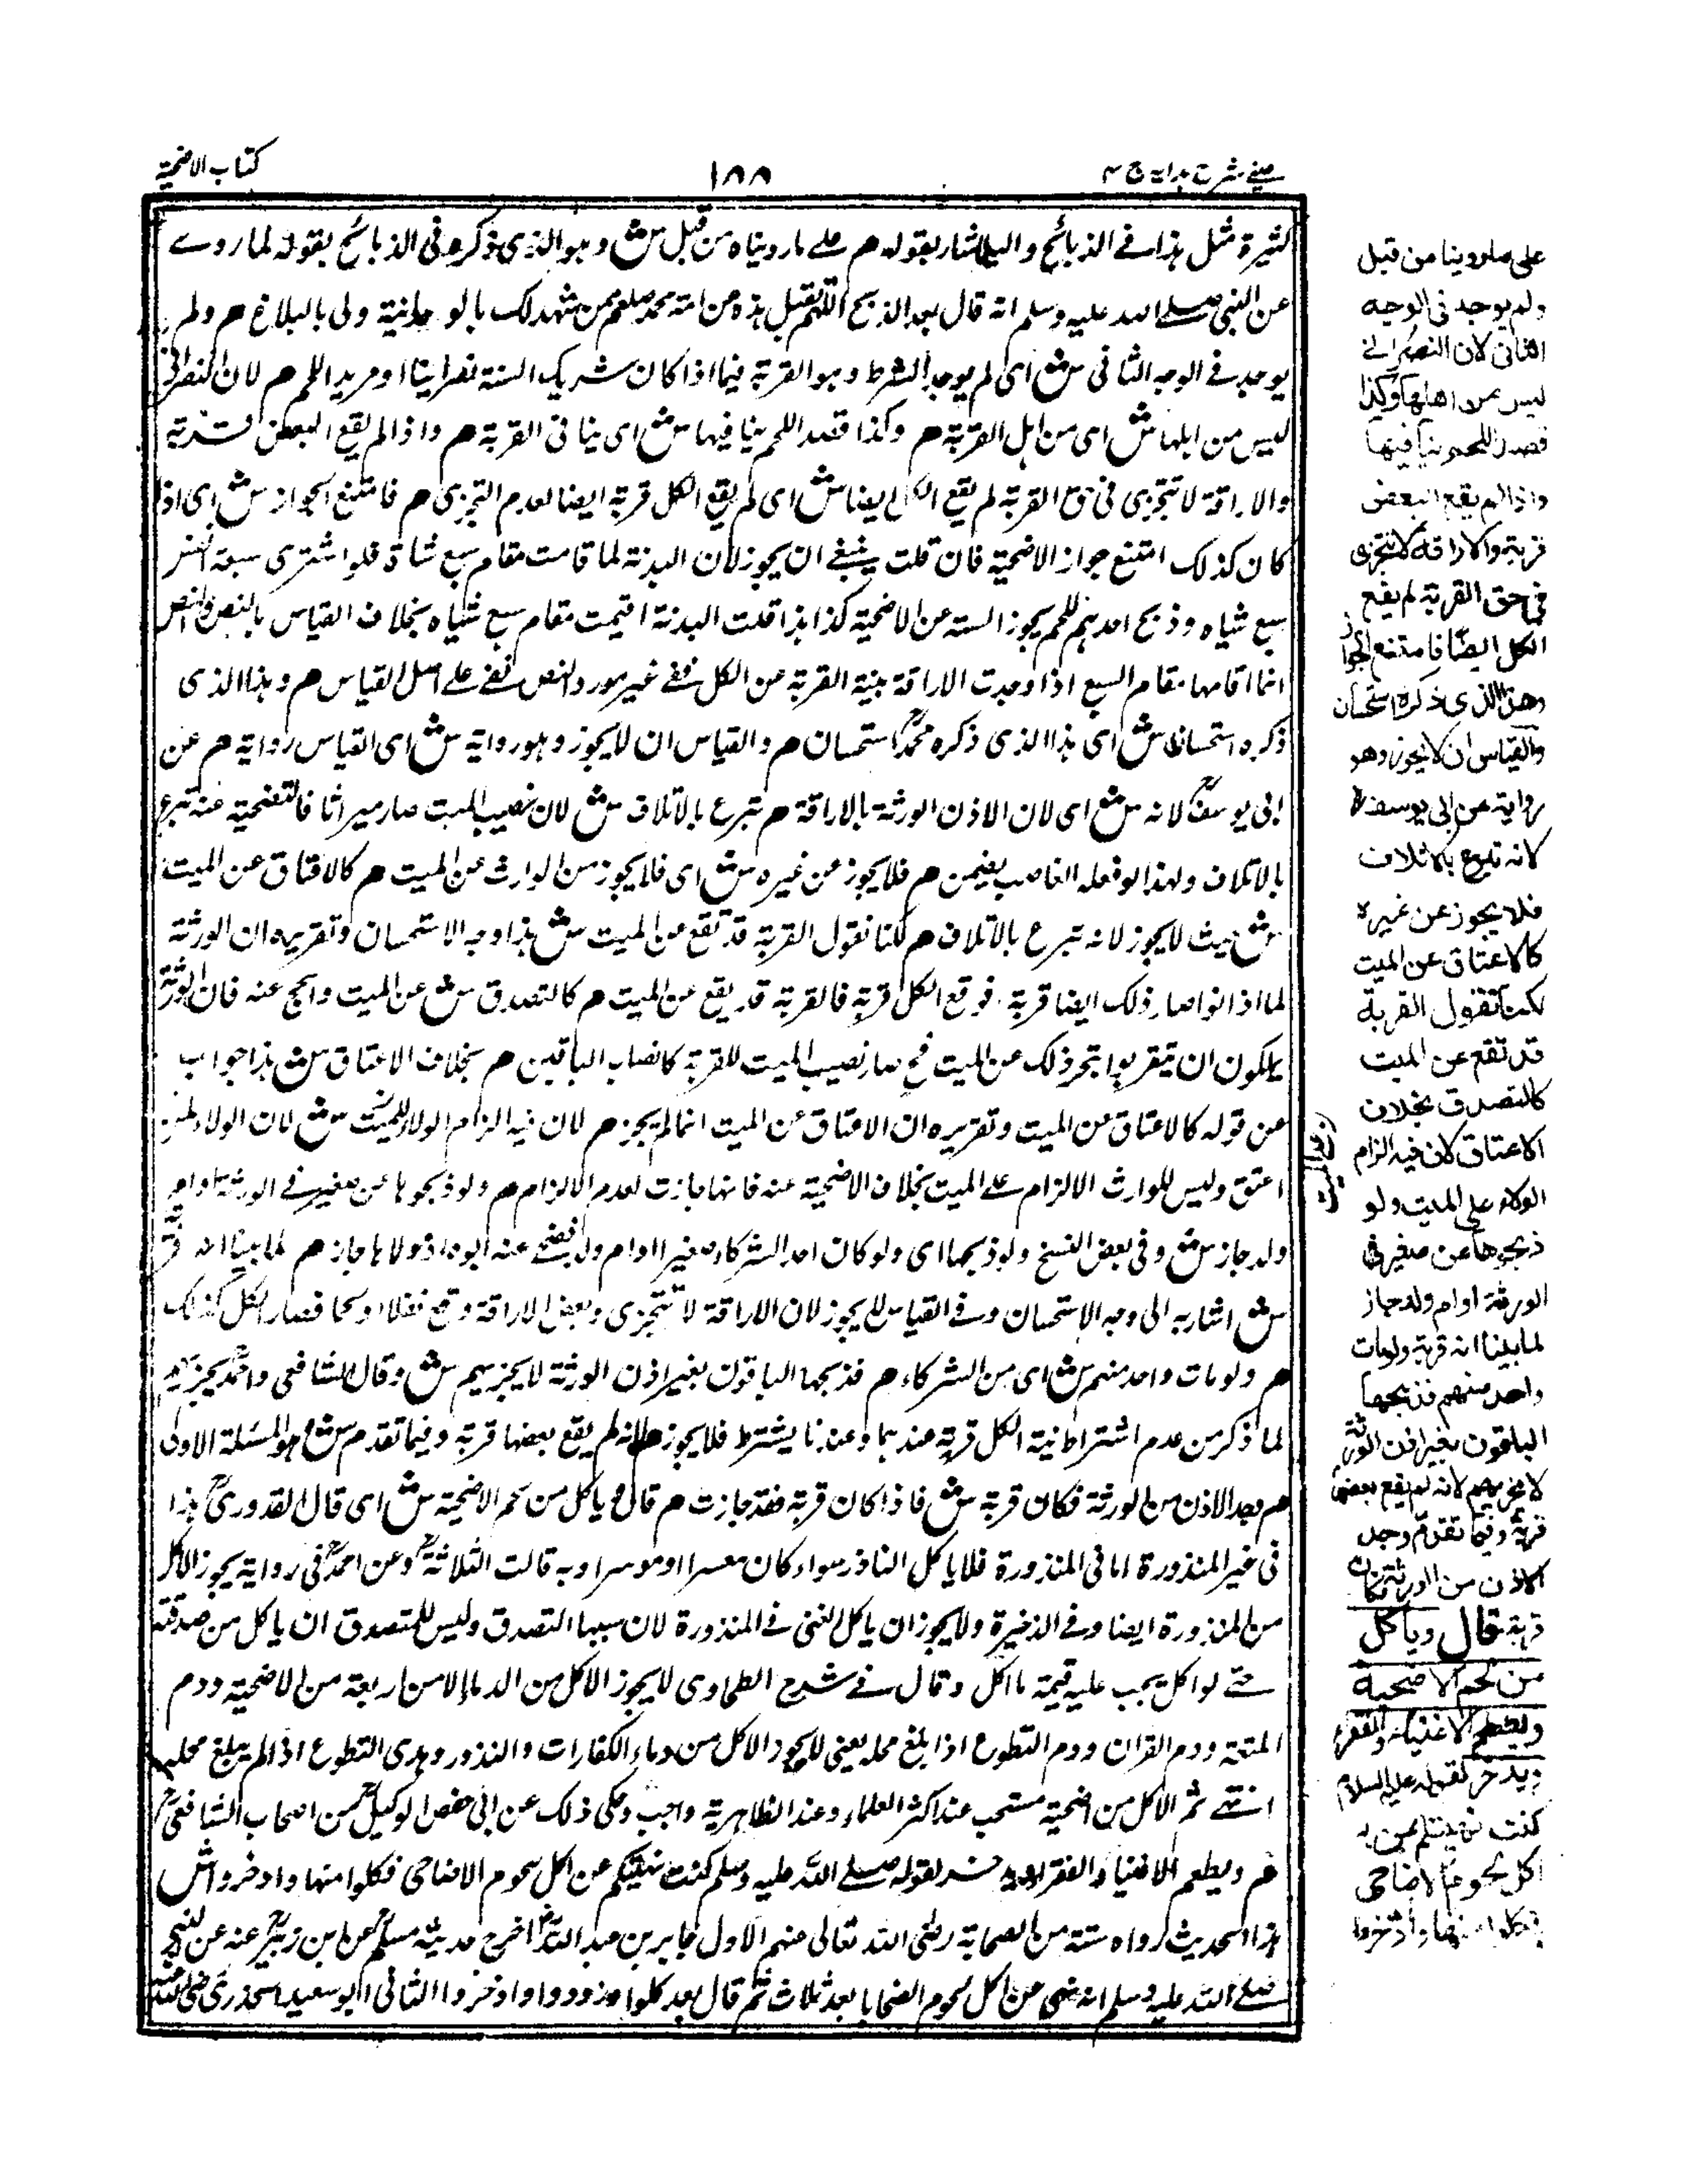 عینے شرح ہدایہ ج ۴
١٨٨
کتاب الاضحیة
کثیرة مثل ہذا فے الذبائح والیہ اشار بقولہ م علے ما رویناہ من قبل ش وہو الذی ذکرہ فی الذبائح بقولہ لما روے
عن النبی صلے اللہ علیہ وسلم انہ قال بعد الذبح اللہم تقبل ہذہ من امة محمد صلعم ممن شہد لک بالوحدانیة ولی بالبلاغ م ولم
یوجد فے الوجہ الثانی ش ای لم یوجد الشرط وہو القربة فیما اذا کان شریک الستة نصرانیا او مرید اللحم م لان النصرانی
لیس من اہلہا ش ای من اہل القربة م وکذا قصد اللحم ینافیہا ش ای ینافی القربة م واذا لم یقع البعض قربة
والاراقة لا تتجزی فی حق القربة لم یقع الکل ایضا ش ای لم یقع الکل قربة ایضا لعدم التجزی م فامتنع الجواز ش ای اذا
کان کذلک امتنع جواز الاضحیة فان قلت ینبغے ان یجوز لان البدنة لما قامت مقام سبع شاة فلو اشتری سبعة نفر
سبع شیاہ وذبح احدہم للحم یجوز الستة عن الاضحیة کذا ہذا قلت البدنة اقیمت مقام سبع شیاہ بخلاف القیاس بالنص والنص
انما اقامہا مقام السبع اذا وجدت الاراقة بنیة القربة عن الکل ففے غیر مورد النص نفے علے اصل القیاس م وہذا الذی
ذکرہ استحسان ش ای ہذا الذی ذکرہ محمد استحسان م والقیاس ان لا یجوز وہو روایة ش ای القیاس روایة م عن
ابی یوسف لانہ ش ای لان الاذن الورثة بالاراقة م تبرع بالاتلاف ش لان نصیب المیت صار میراثا فالتضحیة عنہ تبرع
بالاتلاف ولہذا لو فعلہ الغاصب یضمن م فلا یجوز عن غیرہ ش ای فلا یجوز من الوارث عن المیت م کالاعتاق عن المیت
ش حیث لا یجوز لانہ تبرع بالاتلاف م لکنا نقول القربة قد تقع عن المیت ش ہذا وجہ الاستحسان وتقریرہ ان الورثة
لما اذنوا صار ذلک ایضا قربة فوقع الکل قربة فالقربة قد یقع عن المیت م کالتصدق ش عن المیت والحج عنہ فان الورثة
یملکون ان یتقربوا بنحر ذلک عن المیت فح صار نصیب المیت للقربة کانصاب الباقین م بخلاف الاعتاق ش ہذا جواب
عن قولہ کالاعتاق عن المیت وتقریرہ ان الاعتاق عن المیت انما لم یجز م لان فیہ الزام الولاء للمیت ش لان الولاء لمن
اعتق ولیس للوارث الالزام علے المیت بخلاف الاضحیة عنہ فانہا جازت لعدم الالزام م ولو ذبحوہا عن صغیر فے الورثة او ام
ولد جاز ش وفی بعض النسخ ولو ذبحہا ای ولو کان احد الشرکاء صغیرا او ام ولد فضحے عنہ ابوہ او مولاہا جاز م لما بینا انہ قربة
ش اشار بہ الی وجہ الاستحسان وفے القیاس لا یجوز لان الاراقة لا تتجزی وبعض الاراقة وقع نفلا او لحما فصار الکل کذلک
م ولو مات واحد منہم ش ای من الشرکاء م فذبحہا الباقون بغیر اذن الورثة لا یجزیہم ش وقال الشافعی واحمد یجزیہم
لما ذکر من عدم اشتراط نیة الکل قربة عندہما وعندنا یشترط فلا یجوز م لانہ لم یقع بعضہا قربة وفیما تقدم ش ہو المسئلة الاولی
م وجد الاذن من الورثة فکان قربة ش فاذا کان قربة فقد جازت م قال ویاکل من لحم الاضحیة ش ای قال القدوری ہذا
فی غیر المنذورة اما فی المنذورة فلا یاکل الناذر سواء کان معسرا او موسرا وبہ قالت الثلاثة وعن احمد فی روایة یجوز الاکل
من المنذورة ایضا وفے الذخیرة ولا یجوز ان یاکل الغنی فے المنذورة لان سببہا التصدق ولیس للمتصدق ان یاکل من صدقتہ
حتے لو اکل یجب علیہ قیمة ما اکل وقال فے شرح الطحاوی لا یجوز الاکل من الدماء الا من اربعة من الاضحیة ودم
المتعة ودم القران ودم التطوع اذا بلغ محلہ یعنی لا یجوز الاکل من دماء الکفارات والنذور وہدی التطوع اذا لم یبلغ محلہ
انتہے ثم الاکل من اضحیة مستحب عند اکثر العلماء وعند الظاہریة واجب وحکی ذلک عن ابی حفص الوکیل من اصحاب الشافعی
م ویطعم الاغنیاء والفقراء ویدخر لقولہ صلے اللہ علیہ وسلم کنت نہیتکم عن اکل لحوم الاضاحی فکلوا منہا وادخروا ش
ہذا الحدیث رواہ ستة من الصحابة رضی اللہ تعالی عنہم الاول جابر بن عبد اللہ اخرج حدیثہ مسلم عن ابن زبیر عنہ عن النبی
صلے اللہ علیہ وسلم انہ نہی عن اکل لحوم الضحایا بعد ثلاث ثم قال بعد کلوا وتزودوا وادخروا الثانی ابو سعید الخدری رضی اللہ عنہ
علی ما روینا من قبل
ولم یوجد فی الوجه
الثانی لان النصرانی
لیس من اهلها وکذا
قصد اللحم ینافیها
واذا لم یقع البعض
قربة والاراقة لا تتجزی
فی حق القربة لم یقع
الکل ایضا فامتنع الجواز
وهذا الذی ذکره استحسان
والقیاس ان لا یجوز وهو
روایة عن ابی یوسف
لانه تبرع بالاتلاف
فلا یجوز عن غیره
کالاعتاق عن المیت
لکنا نقول القربة
قد تقع عن المیت
کالتصدق بخلاف
الاعتاق لان فیه الزام
الولاء علی المیت ولو
ذبحوها عن صغیر فی
الورثة او ام ولد جاز
لما بینا انه قربة ولو مات
واحد منهم فذبحها
الباقون بغیر اذن الورثة
لا یجزیهم لانه لم یقع بعضها
قربة وفیما تقدم وجد
الاذن من الورثة فکان
قربة قال ویاکل
من لحم الاضحیة
ویطعم الاغنیاء والفقراء
ویدخر لقوله علیه السلام
کنت نهیتکم عن
اکل لحوم الاضاحی
فکلوا منها وادخروا